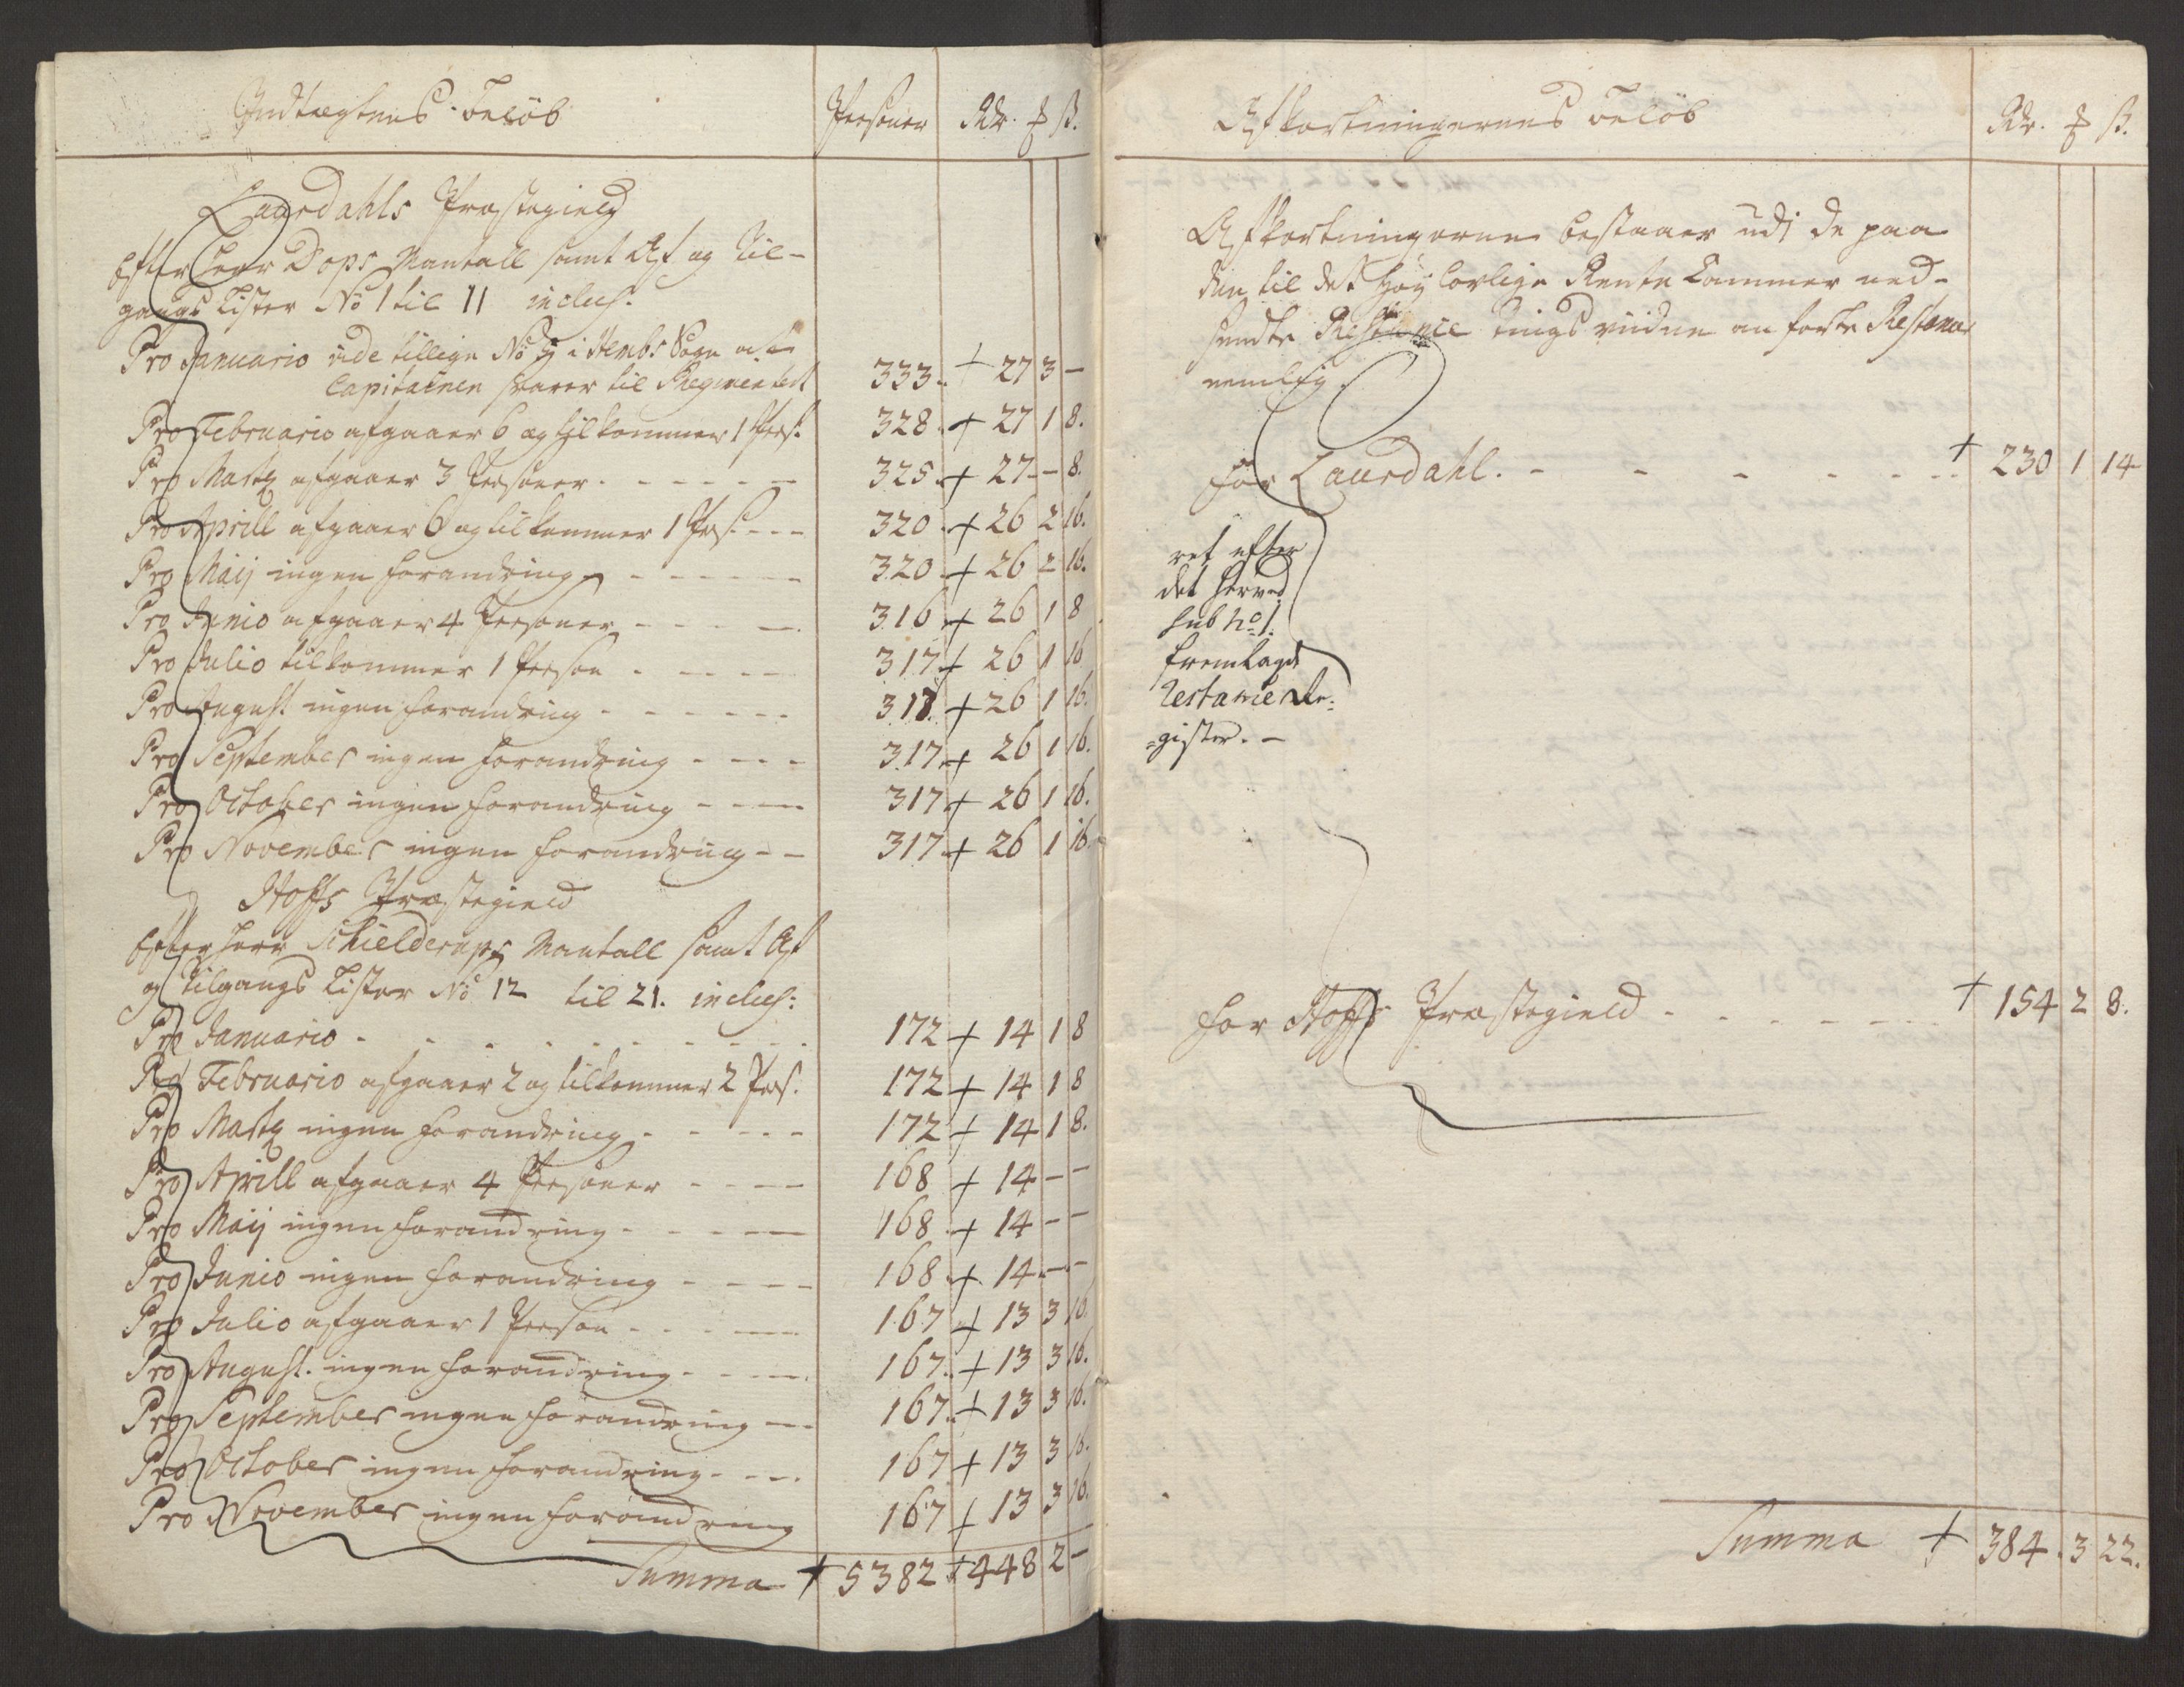 Indtægtens Beløb Personer Rdr. ₰ ß.
Laurdahls Præstegield
Efter Herr Dops Mantall samt Af og Til-
gangs Lister No 1 til 11 inclus:
Pro Januario vide tillige No i Sogn at
Capitainen svarer til Regimentet 333. + 27 3 -
Pro Februario afgaaer 6 og tilkommer 1 Pers: 328. + 27 1 8.
Pro Martz afgaaer 3 Personer. - - - - - 325. + 27 - 8.
Pro Aprill afgaaer 6 og tilkommer 1 Pers: - - - 320. + 26 2 16.
Pro Maij ingen forandring - - - - - 320. + 26 2 16.
Pro Junio afgaaer 4 Personer - - - - 316 + 26 1 8
Pro Julio tilkommer 1 Person - - - - 317 + 26 1 16
Pro August. ingen forandring - - - - - - 317. + 26 1 16.
Pro September ingen forandring - - - - 317. + 26 1 16.
Pro October ingen forandring - - - - 317 + 26 1 16.
Pro November ingen forandring - - 317 + 26 1 16.
Hoffs Præstegield
Efter Herr Schielderups Mantall samt Af
og Tilgangs Lister No 12 til 21. inclus:
Pro Januario - - - - - - - - 172 + 14 1 8
Pro Februario afgaaer 2 og tilkommer 2 Pers: 172 + 14 1 8
Pro Martz ingen forandring - - - - - 172 + 14 1 8.
Pro Aprill afgaaer 4 Personer - - - - 168 + 14 - -
Pro Maij ingen forandring - - - - - 168. + 14 - -
Pro Junio ingen forandring - - - - 168. + 14 - -
Pro Julio afgaaer 1 Person - - - - - 167 + 13 3 16.
Pro August. ingen forandring - - - - 167. + 13 3 16.
Pro September ingen forandring - - - 167. + 13 3 16.
Pro October ingen forandring - - - . 167 + 13 3 16.
Pro November ingen forandring 167 + 13 3 16.
Summa + 5382 + 448 2 -
Afkortningernes Beløb Rdr. ₰ ß.
Afkortningerne bestaaer udi de paa
den til det Høy lovlige Rente Cammer ned-
sendte Restance Tings vidne anførte Restancer
nemlig
for Laurdahl. - - - - - - + 230 1 14
ret efter
det herved
sub No 1.
fremlagde
Restance Re-
=gister. -
for Hoffs Præstegield - - - - - - + 154 2 8.
Summa + 384. 3 22.